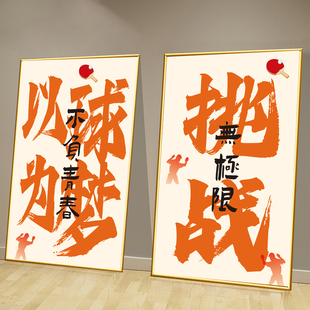 以球
为梦
不負青春
挑战
無極限